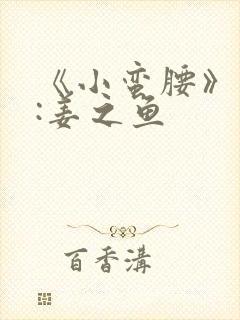 《小蛮腰》
:姜之鱼
百香溝